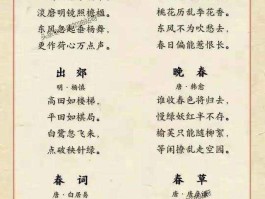 滚磨明镜照檐楹。
东风忽起垂杨舞,
更作荷心万点声。
出郊
明·杨慎
高田如楼梯,
平田如棋局。
白鹭忽飞来,
点破秧针绿。
春词
唐·白居易
桃花历乱李花香。
东风不为吹愁去,
春日偏能惹恨长。
晚春
唐·韩愈
谁收春色将归去,
慢绿妖红半不存。
榆荚只能随柳絮,
等闲撩乱走空园。
春草
唐·唐